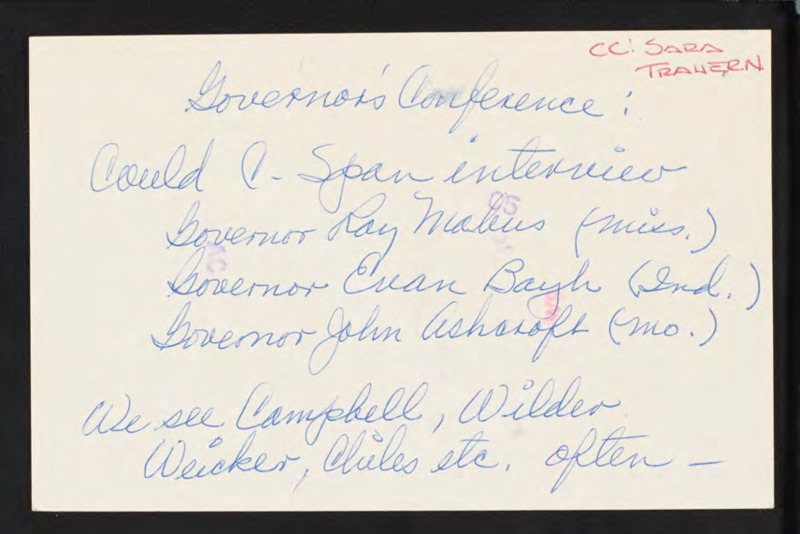 CC: SARA
TRAHERN
Governor's Conference:
Could C-Span interview
Governor Ray Mabus (Miss.)
Governor Evan Bayh (Ind.)
Governor John Ashcroft (Mo.)
We see Campbell, Wilder
Weicker, Chiles etc. often —